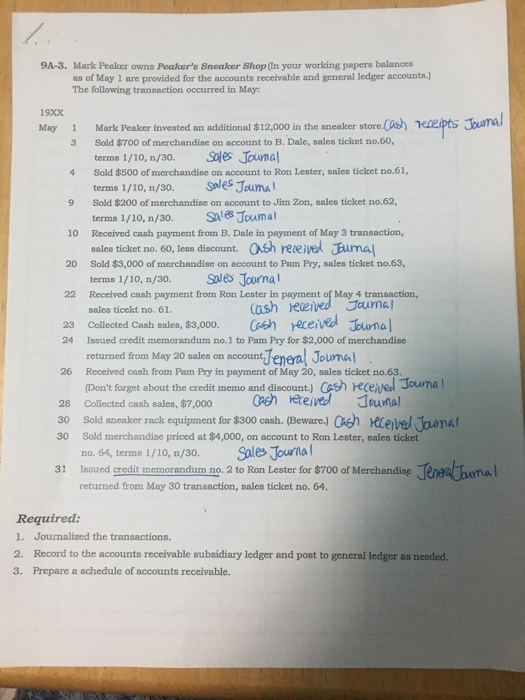 1.
9A-3. Mark Peaker owns Peaker's Sneaker Shop (In your working papers balances
as of May 1 are provided for the accounts receivable and general ledger accounts.)
The following transaction occurred in May:
19XX
May 1 Mark Peaker invested an additional $12,000 in the sneaker store. Cash receipts Journal
3 Sold $700 of merchandise on account to B. Dale, sales ticket no.60,
terms 1/10, n/30. Sales Journal
4 Sold $500 of merchandise on account to Ron Lester, sales ticket no.61,
terms 1/10, n/30. Sales Journal
9 Sold $200 of merchandise on account to Jim Zon, sales ticket no.62,
terms 1/10, n/30. Sales Journal
10 Received cash payment from B. Dale in payment of May 3 transaction,
sales ticket no. 60, less discount. Cash received Journal
20 Sold $3,000 of merchandise on account to Pam Pry, sales ticket no.63,
terms 1/10, n/30. Sales Journal
22 Received cash payment from Ron Lester in payment of May 4 transaction,
sales ticekt no. 61. Cash received Journal
23 Collected Cash sales, $3,000. Cash received Journal
24 Issued credit memorandum no.1 to Pam Pry for $2,000 of merchandise
returned from May 20 sales on account. Jeneral Journal
26 Received cash from Pam Pry in payment of May 20, sales ticket no.63.
(Don't forget about the credit memo and discount.) Cash received Journal
28 Collected cash sales, $7,000 Cash received Journal
30 Sold sneaker rack equipment for $300 cash. (Beware.) Cash received Journal
30 Sold merchandise priced at $4,000, on account to Ron Lester, sales ticket
no. 64, terms 1/10, n/30. Sales Journal
31 Issued credit memorandum no. 2 to Ron Lester for $700 of Merchandise Jeneral Journal
returned from May 30 transaction, sales ticket no. 64.
Required:
1. Journalized the transactions.
2. Record to the accounts receivable subsidiary ledger and post to general ledger as needed.
3. Prepare a schedule of accounts receivable.